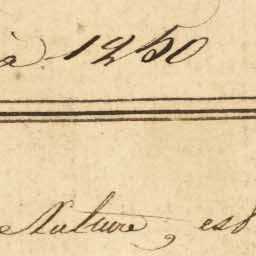 à 1250
Nature, est